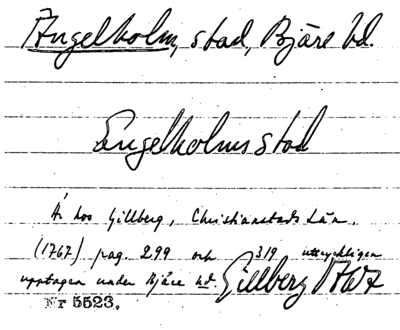 Ängelholm, stad, Bjäre hd.
Engelholms stad
Är hos Gillberg, Christianstads Län.
(1767) pag. 299 och 319 uttryckligen
upptagen under Bjäre hd. Gillberg 1767
Nr 5523.